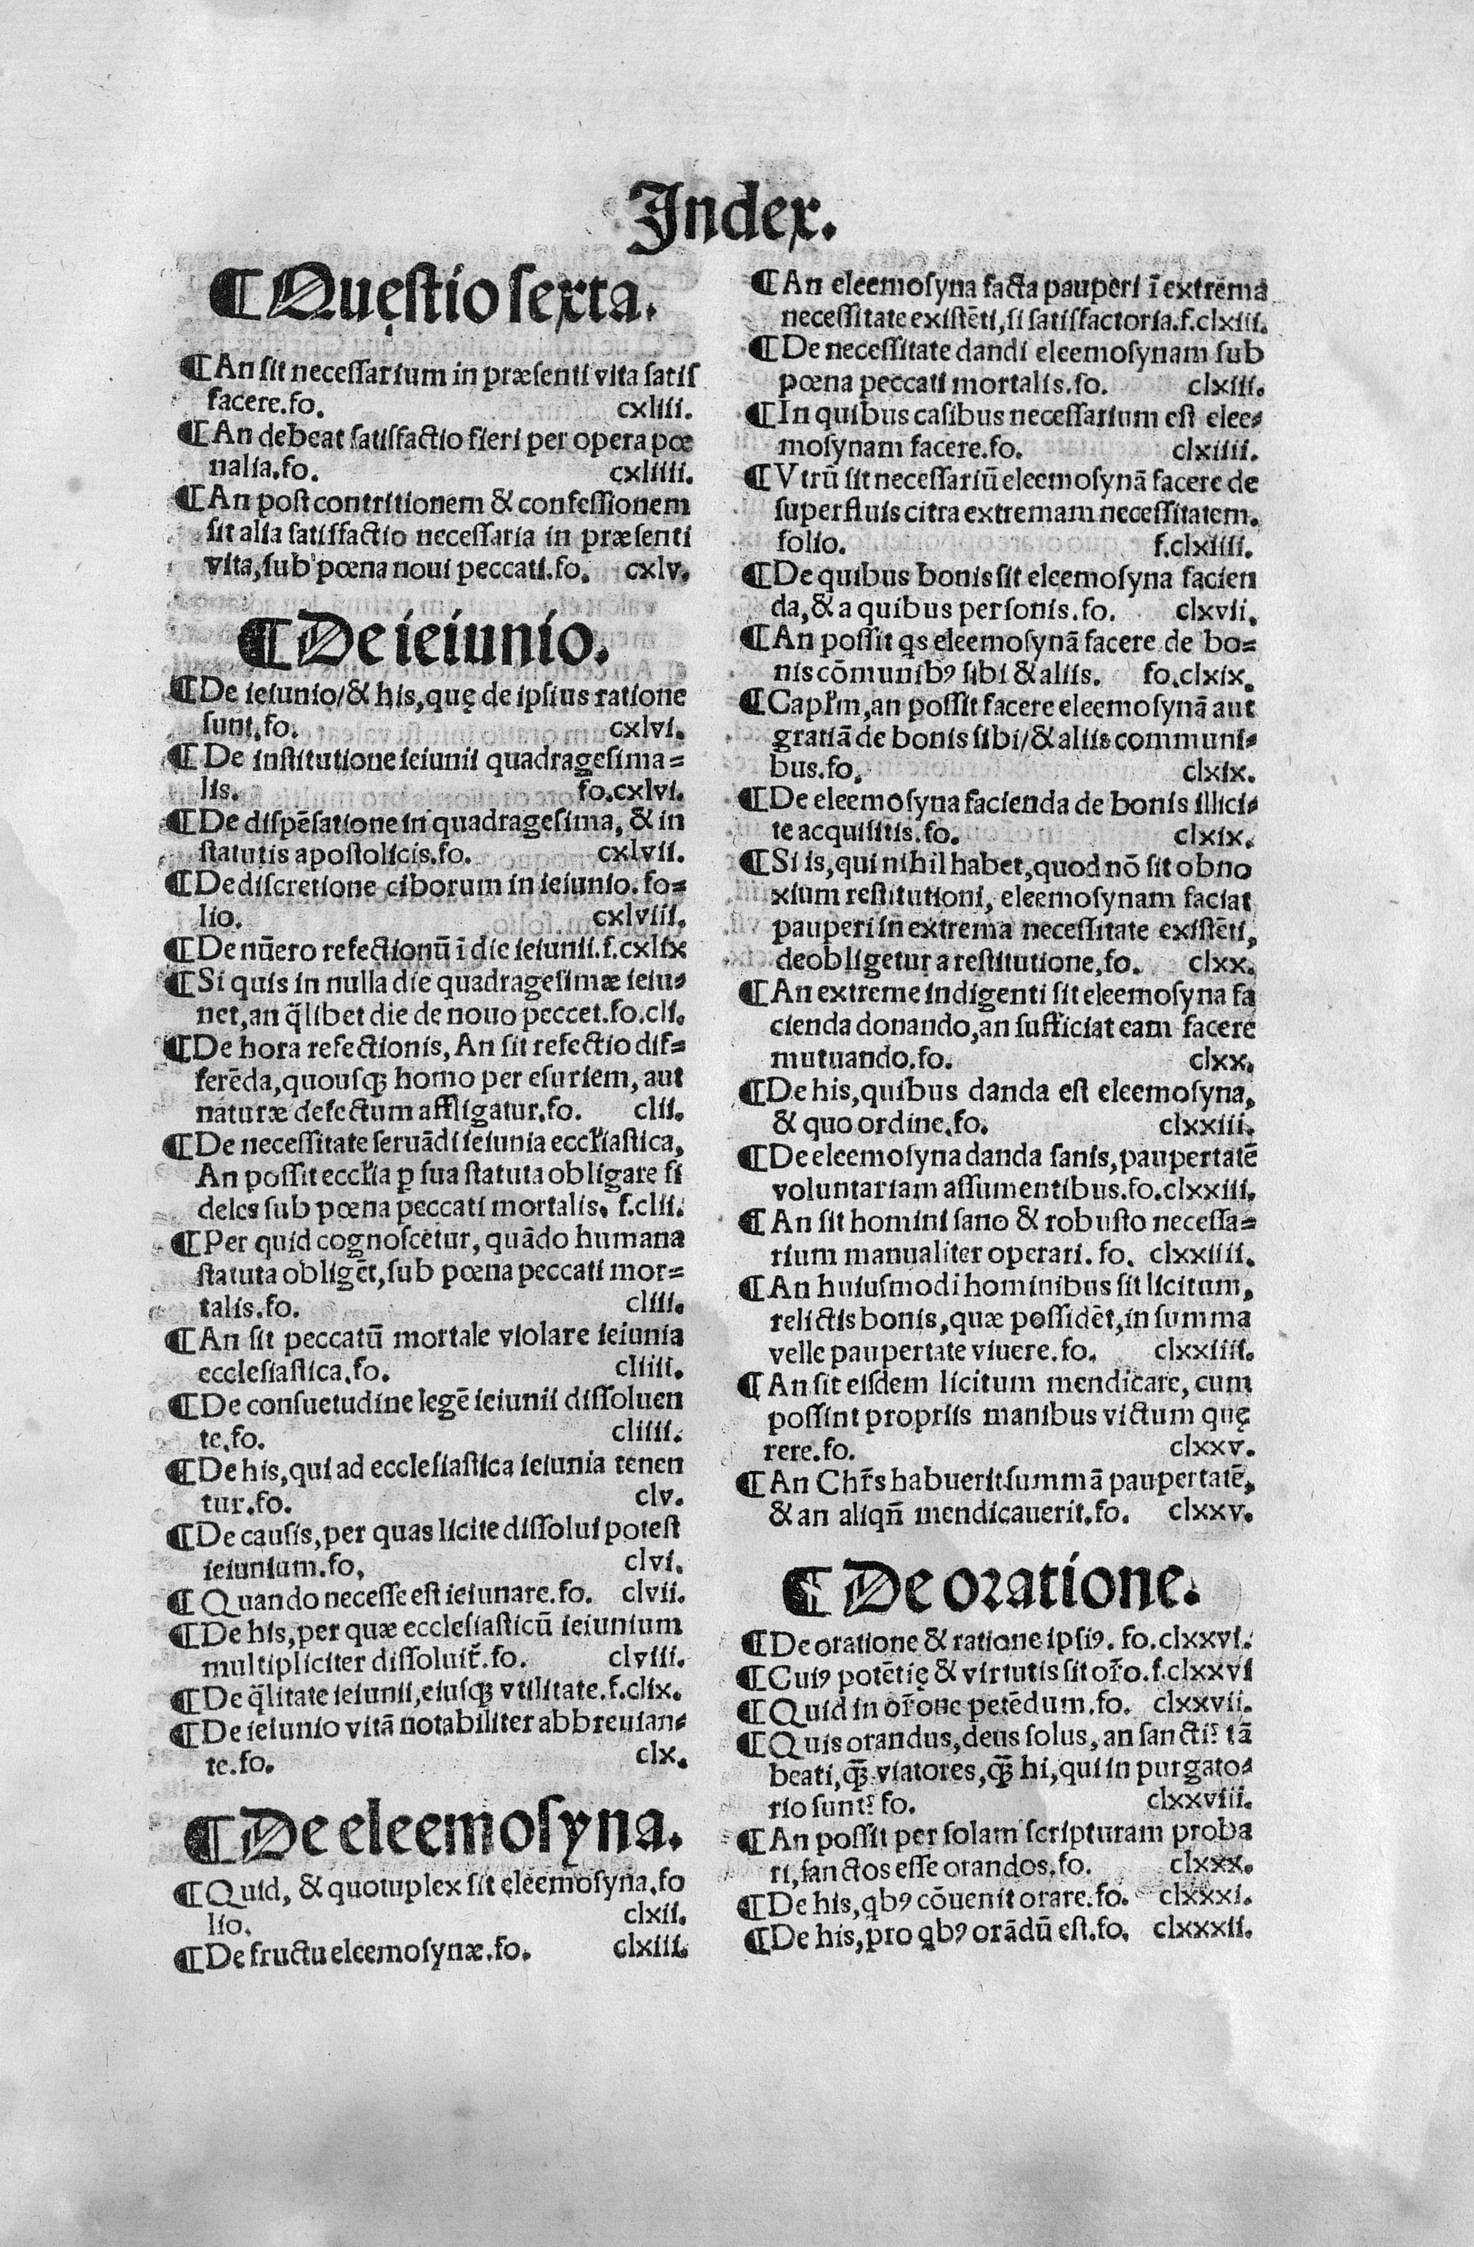 Index.
¶ Quęstio sexta.
¶ An sit necessarium in præsenti vita satis
facere.fo. cxliii.
¶ An debeat satisfactio fieri per opera pœ
nalia.fo. cxliiii.
¶ An post contritionem & confessionem
sit alia satisfactio necessaria in præsenti
vita, sub pœna noui peccati.fo. cxlv.
¶ De ieiunio.
¶ De ieiunio/& his, quę de ipsius ratione
sunt.fo. cxlvi.
¶ De institutione ieiunii quadragesima=
lis. fo.cxlvi.
¶ De dispēsatione in quadragesima, & in
statutis apostolicis.fo. cxlvii.
¶ De discretione ciborum in ieiunio. fo=
lio. cxlviii.
¶ De nūero refectionū ī die ieiunii.f.cxlix
¶ Si quis in nulla die quadragesimæ ieiu=
net, an q̄libet die de nouo peccet.fo.cli.
¶ De hora refectionis, An sit refectio dif=
ferēda, quousqꝫ homo per esuriem, aut
naturæ defectum affligatur.fo. clii.
¶ De necessitate seruādi ieiunia ecclīastica,
An possit ecclīa ꝑ sua statuta obligare fi
deles sub pœna peccati mortalis. f.clii.
¶ Per quid cognoscetur, quādo humana
statuta obligēt, sub pœna peccati mor=
talis.fo. cliii.
¶ An sit peccatū mortale violare ieiunia
ecclesiastica.fo. cliiii.
¶ De consuetudine legē ieiunii dissoluen
te.fo. cliiii.
¶ De his, qui ad ecclesiastica ieiunia tenen
tur.fo. clv.
¶ De causis, per quas licite dissolui potest
ieiunium.fo, clvi.
¶ Quando necesse est ieiunare.fo. clvii.
¶ De his, per quæ ecclesiasticū ieiunium
multipliciter dissoluit̄.fo. clviii.
¶ De q̄litate ieiunii, eiusqꝫ vtilitate.f.clix.
¶ De ieiunio vitā notabiliter abbreuian=
te.fo. clx.
¶ De eleemosyna.
¶ Quid, & quotuplex sit eleemosyna.fo
lio. clxii.
¶ De fructu eleemosynæ.fo. clxiii.
¶ An eleemosyna facta pauperi ī extrēma
necessitate existēti, si satisfactoria.f.clxiii.
¶ De necessitate dandi eleemosynam sub
pœna peccati mortalis.fo. clxiii.
¶ In quibus casibus necessarium est elee=
mosynam facere.fo. clxiiii.
¶ Vtrū sit necessariū eleemosynā facere de
superfluis citra extremam necessitatem.
folio. f.clxiiii.
¶ De quibus bonis sit eleemosyna facien
da, & a quibus personis.fo. clxvii.
¶ An possit qs eleemosynā facere de bo=
nis cōmunibꝰ sibi & aliis. fo.clxix.
¶ Capłm, an possit facere eleemosynā aut
gratiā de bonis sibi/& aliis communi=
bus.fo. clxix.
¶ De eleemosyna facienda de bonis illici=
te acquisitis.fo. clxix.
¶ Si is, qui nihil habet, quod nō sit obno
xium restitutioni, eleemosynam faciat
pauperi in extrema necessitate existēti,
deobligetur a restitutione.fo. clxx.
¶ An extreme indigenti sit eleemosyna fa
cienda donando, an sufficiat eam facere
mutuando.fo. clxx.
¶ De his, quibus danda est eleemosyna,
& quo ordine.fo. clxxiii.
¶ De eleemosyna danda sanis, paupertatē
voluntariam assumentibus.fo.clxxiii.
¶ An sit homini sano & robusto necessa=
rium manualiter operari. fo. clxxiiii.
¶ An huiusmodi hominibus sit licitum,
relictis bonis, quæ possidēt, in summa
velle paupertate viuere.fo. clxxiiii.
¶ An sit eisdem licitum mendicare, cum
possint propriis manibus victum quę
rere.fo. clxxv.
¶ An Chr̄s habuerit summā paupertatē,
& an aliqn̄ mendicauerit.fo. clxxv.
¶ De oratione.
¶ De oratione & ratione ipsiꝰ. fo.clxxvi.
¶ Cuiꝰ potētię & virtutis sit or̄o.f.clxxvi
¶ Quid in or̄one petēdum.fo. clxxvii.
¶ Quis orandus, deus solus, an sancti? tā
beati, qꝫ̄ viatores, qꝫ̄ hi, qui in purgato=
rio sunt? fo. clxxviii.
¶ An possit per solam scripturam proba
ri, sanctos esse orandos.fo. clxxx.
¶ De his, qbꝰ cōuenit orare.fo. clxxxi.
¶ De his, pro qbꝰ orādū est.fo. clxxxii.